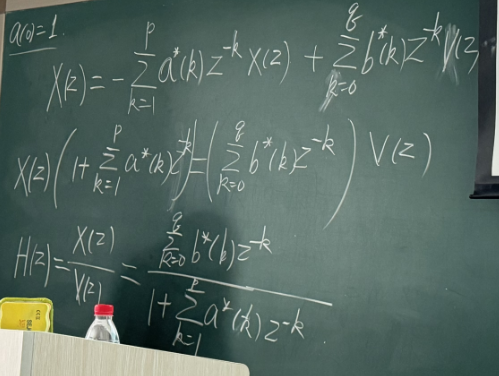 a(0)=1.
X(z) = -\sum_{k=1}^{p} a^*(k) z^{-k} X(z) + \sum_{k=0}^{q} b^*(k) z^{-k} V(z)
X(z) ( 1 + \sum_{k=1}^{p} a^*(k) z^{-k} ) = ( \sum_{k=0}^{q} b^*(k) z^{-k} ) V(z)
H(z) = \frac{X(z)}{V(z)} = \frac{\sum_{k=0}^{q} b^*(k) z^{-k}}{1 + \sum_{k=1}^{p} a^*(k) z^{-k}}